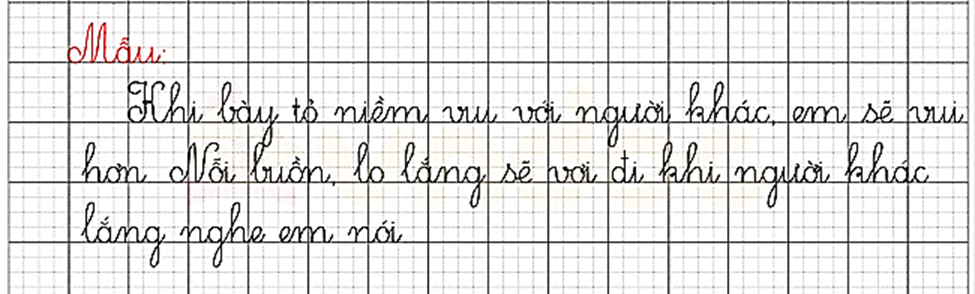 Mẫu:
Khi bày tỏ niềm vui với người khác, em sẽ vui
hơn. Nỗi buồn, lo lắng sẽ vơi đi khi người khác
lắng nghe em nói